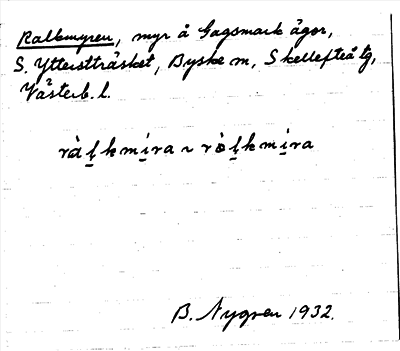 Ralkmyren, myr å Gagsmark ägor,
S. Ytterstträsket, Byske sn, Skellefteå tg,
Västerb. l.
ràl̥kmi̲ra ~ ròl̥kmi̲ra
B. Nygren 1932.